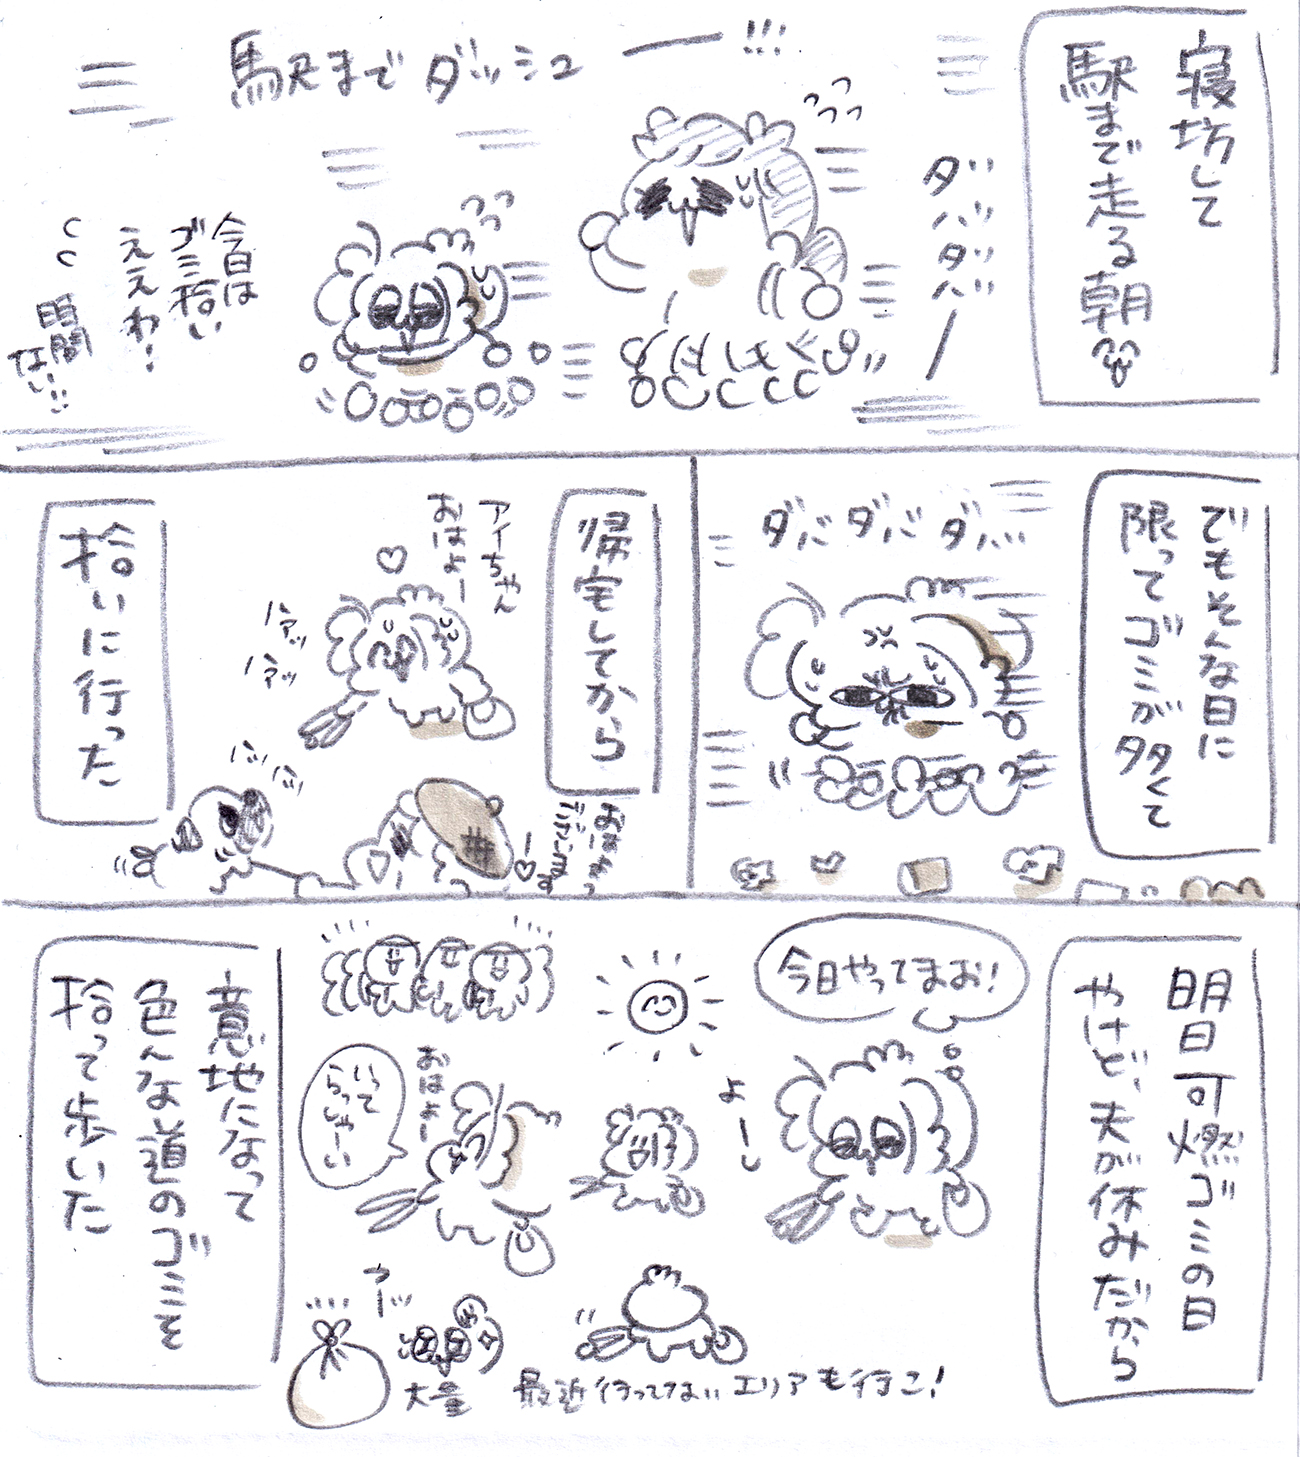 寝坊して
駅まで走る朝
駅までダッシュー!!!
ダバダバー
今日は
ゴミ拾い
ええわ!
時間
ない!!!
でもそんな日に
限ってゴミが多くて
ダバダバダバ
帰宅してから
アイちゃん
おはよー
ハァッ
ハァッ
拾いに行った
明日可燃ゴミの日
やけど、夫が休みだから
今日やってまお!
よーし
おはよー
いって
らっしゃーい
最近行ってないエリアも行こ!
大量
意地になって
色んな道のゴミを
拾って歩いた